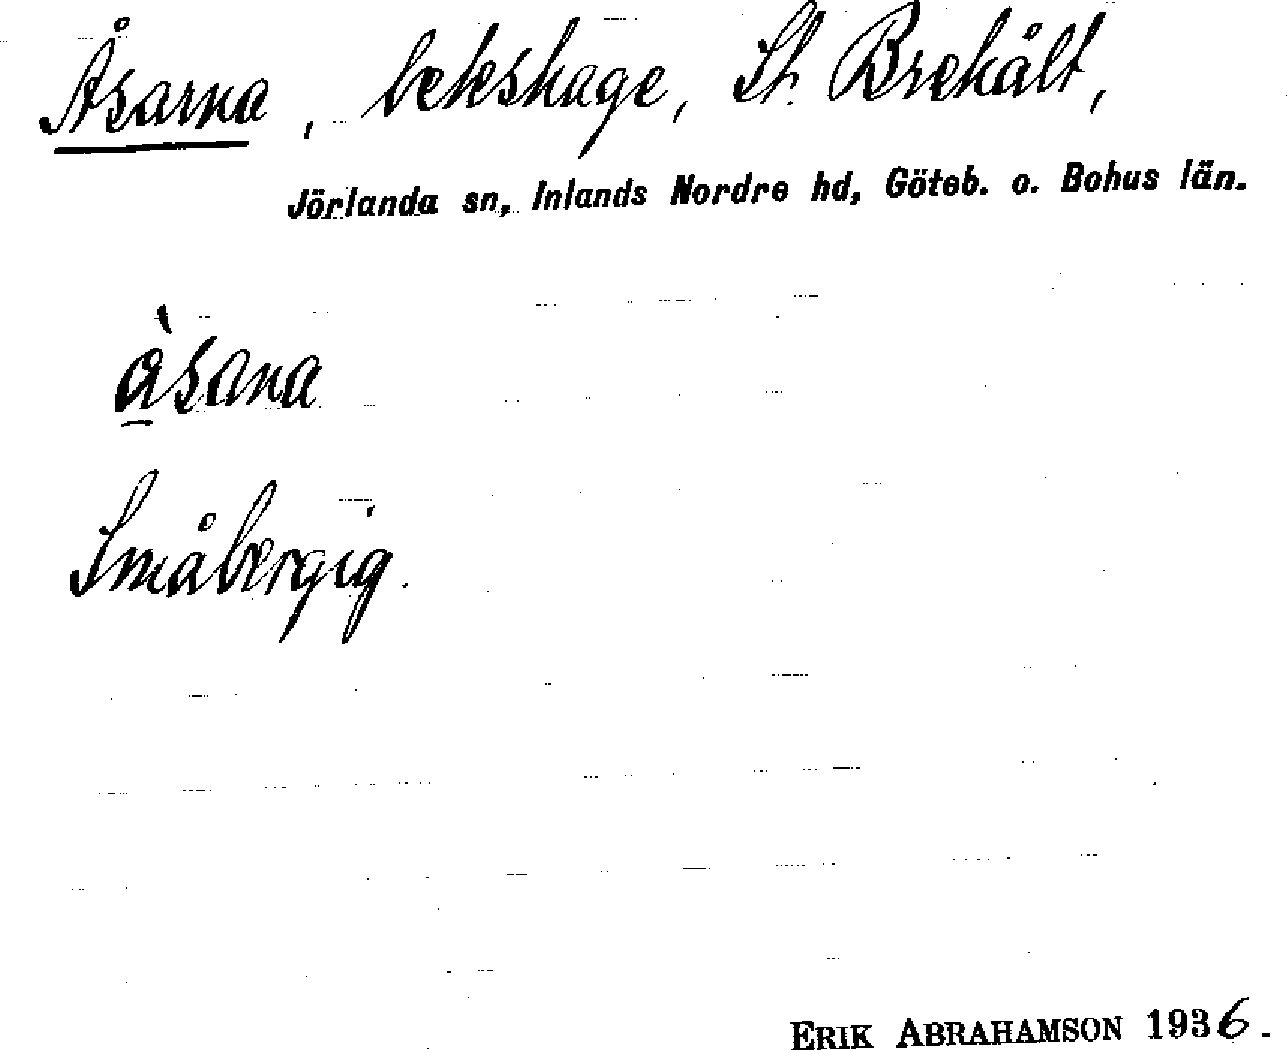 Åsarna, beteshage, St. Brekält,
Jörlanda sn, Inlands Nordre hd, Göteb. o. Bohus län.
ɑ̀sana
Småbergig.
ERIK ABRAHAMSON 1936.